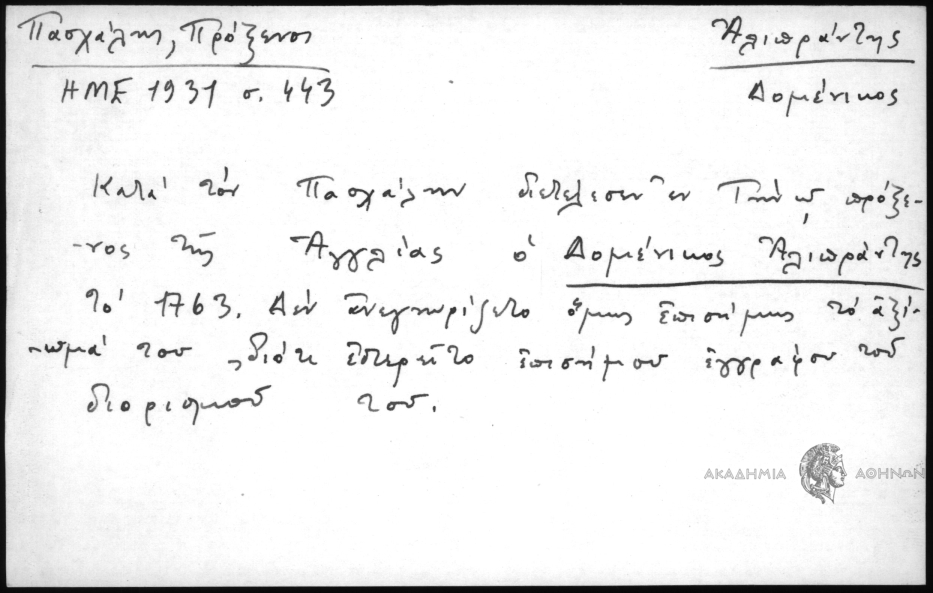 Πασχάλης, Πρόξενος
Ἀλιπράντης
ΗΜΕ 1931 σ. 443
Δομένικος
Κατά τόν Πασχάλην διετέλεσεν ἐν Τήνῳ πρόξε-
-νος τῆς Ἀγγλίας ὁ Δομένικος Ἀλιπράντης
τό 1763. Δέν ἀνεγνωρίζετο ὅμως ἐπισήμως τό ἀξί-
-ωμά του, διότι ἐστερεῖτο ἐπισήμου ἐγγράφου τοῦ
διορισμοῦ του.
ΑΚΑΔΗΜΙΑ ΑΘΗΝΩΝ